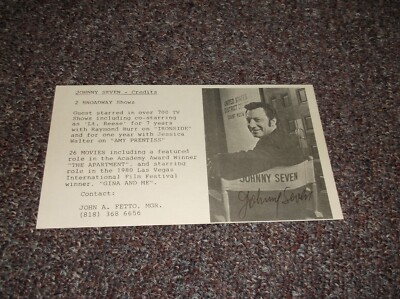 JOHNNY SEVEN - Credits
2 BROADWAY Shows
Guest starred in over 700 TV
Shows including co-starring
as "Lt. Reese" for 7 years
with Raymond Burr on "IRONSIDE" and
for one year with Jessica
Walter on "AMY PRENTISS"
26 MOVIES including a featured
role in the Academy Award Winner
"THE APARTMENT" and starring
role in the 1980 Las Vegas
International Film Festival
winner, "GINA AND ME".
Contact:
JOHN A. FETTO, MGR.
(818) 368 6656
UNITED
DISTRICT
JOHNNY SEVEN
Johnny Seven